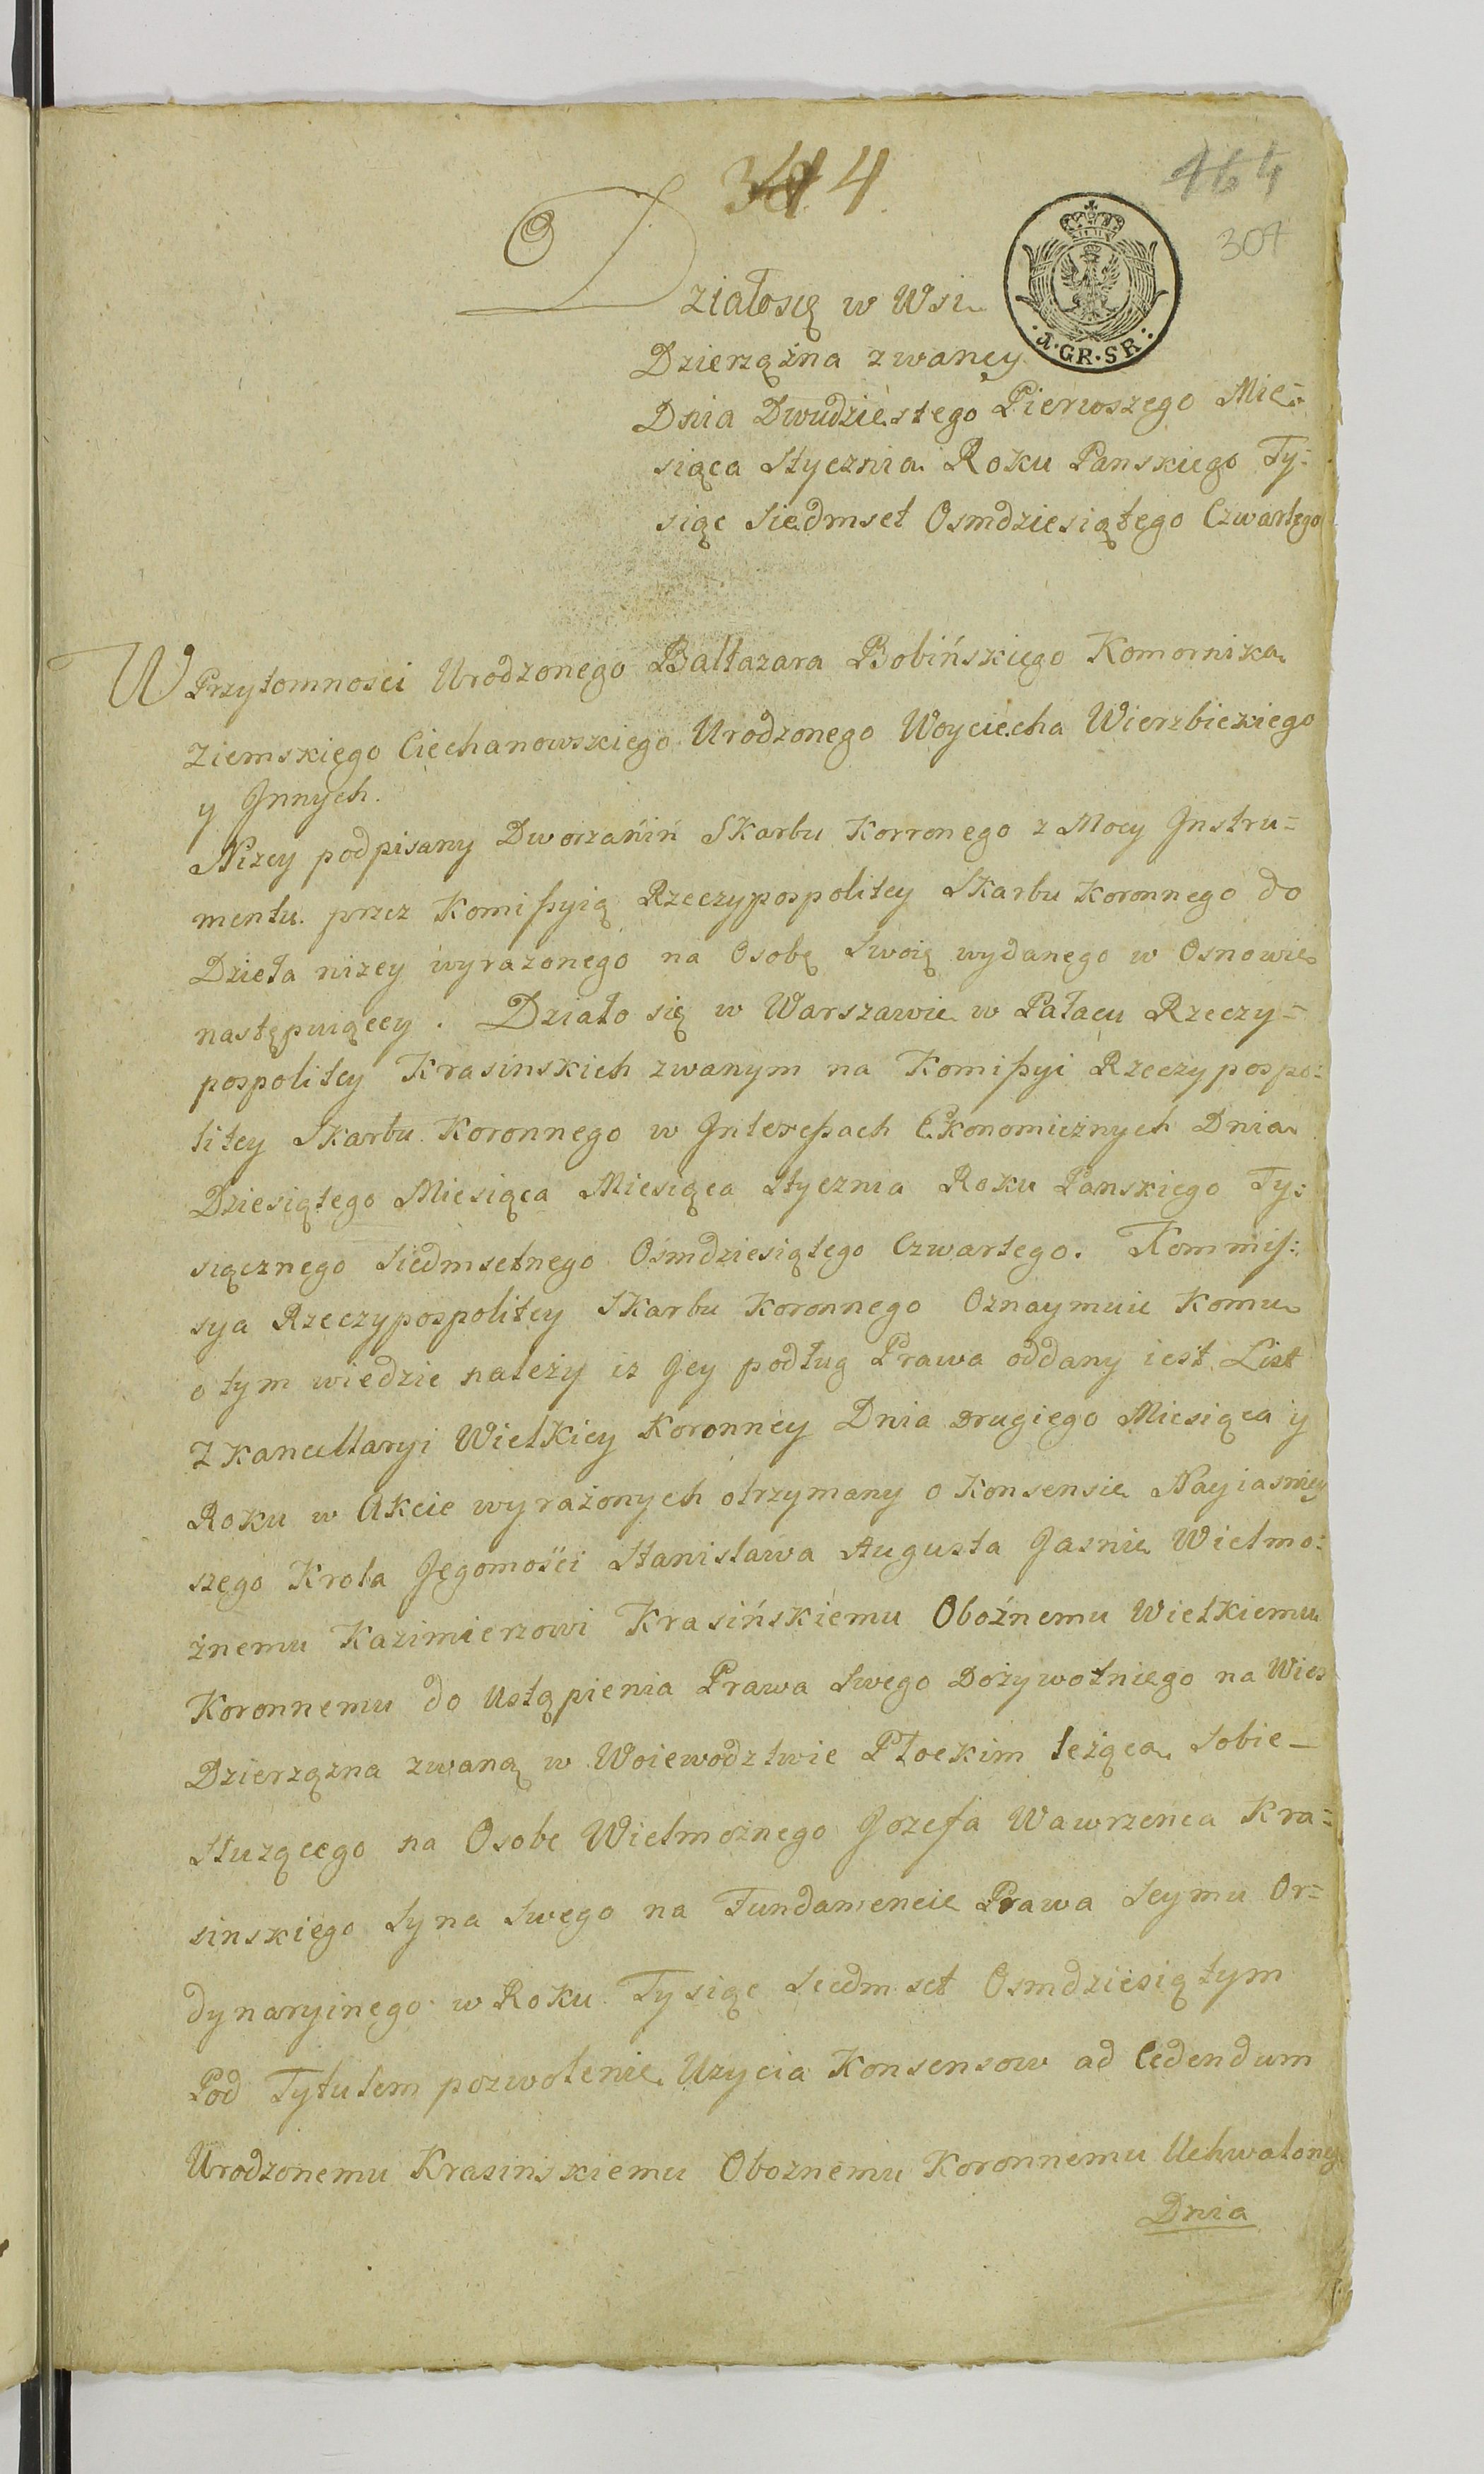 4
164
307
Działosię w Wsi
Dzierzążna zwaney
Dnia Dwudziestego Pierwszego Mie=
siąca Stycznia Roku Panskiego Ty=
siąc Siedmset Osmdziesiątego Czwartego
a·GR·SR:
W Przytomnosci Urodzonego Baltazara Bobińskiego Komornika
Ziemskiego Ciechanowskiego Urodzonego Woyciecha Wierzbickiego
y Jnnych.
Nizey podpisany Dworzanin Skarbu Korronego z Mocy Jnstru=
mentu przez Komißyią Rzeczypospolitey Skarbu Koronnego do
Dzieła nizey wyrazonego na Osobę Swoię wydanego w Osnowie
następuiącey. Działo się w Warszawie w Pałacu Rzeczy=
pospolitey Krasinskich zwanym na Komißyi Rzeczypospo=
litey Skarbu Koronnego w Jntereßach Ekonomicznych Dnia
Dziesiątego Miesiąca Miesiąca Stycznia Roku Panskiego Ty=
siącznego Siedmsetnego Osmdziesiątego Czwartego. Kommiß:
sya Rzeczypospolitey Skarbu Koronnego Oznaymuie Komu
o tym wiedzie należy iz Jey podług Prawa oddany iest List
Z Kancellaryi Wielkiey Koronney Dnia Drugiego Miesiąca y
Roku w Akcie wyrażonych otrzymany o Konsensie Nayiasniey
szego Krola Jegomości Stanisława Augusta Jasnie Wielmo=
żnemu Kazimierzowi Krasińskiemu Oboźnemu Wielkiemu
Koronnemu do Ustąpienia Prawa Swego Dożywotniego na Wies
Dzierzązna zwaną w Woiewodztwie Płockim leżąca Sobie
Służącego na Osobe Wielmożnego Jozefa Wawrzeńca Kra=
sinskiego Syna Swego na Fundamencie Prawa Seymu Or=
dynaryinego w Roku Tysiąc Siedmset Osmdziesiątym
Pod Tytułem pozwolenie Uzycia Konsensow ad Cedendum
Urodzonemu Krasinskiemu Oboznemu Koronnemu Uchwalonego
Dnia